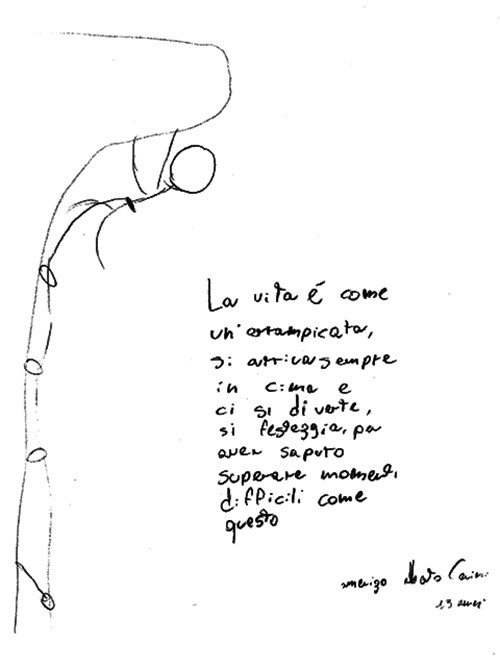 La vita é come
un'arrampicata,
si arriva sempre
in cima e
ci si diverte,
si festeggia, per
aver saputo
superare momenti
difficili come
questo
13 anni